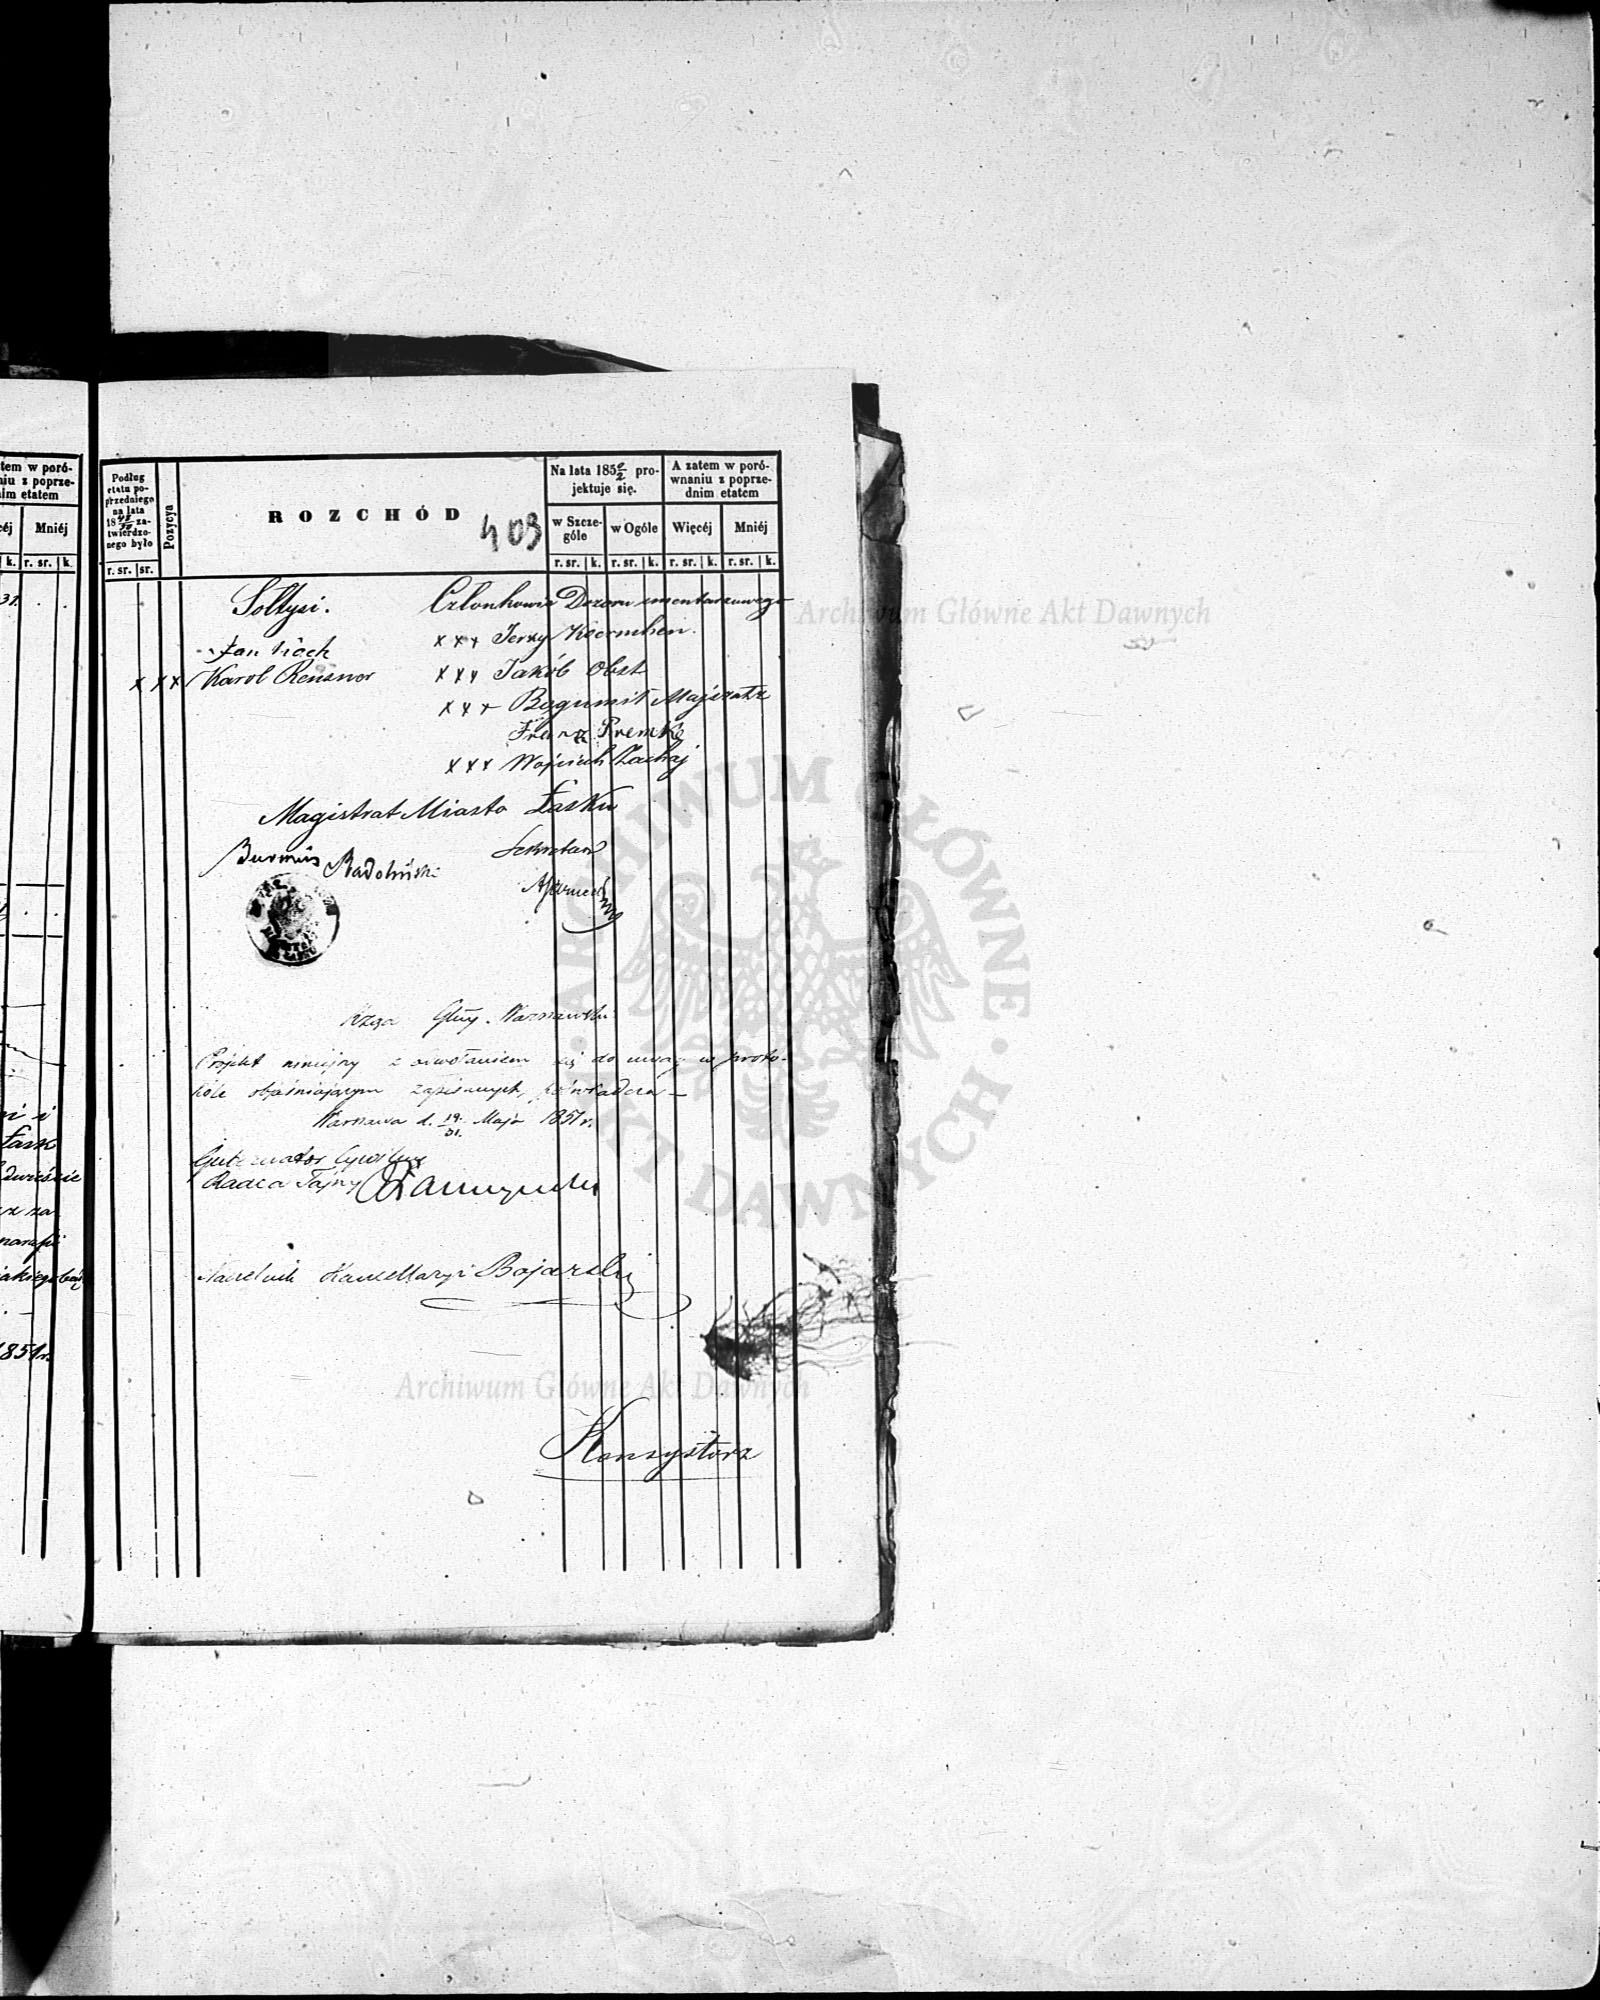 tem w poró-
niu z poprze-
nim etatem
céj Mniéj
k. r. sr. k.
31. . .
ni i
Łask
dwieście
rz za
parafii
1851 r.
Podług
etatu po-
przedniego
na lata
18 48/50 za-
twierdzo-
nego było
r. sr. sr.
Pozycya
ROZCHÓD
409
Na lata 185 0/2 pro-
jektuje się.
w Szcze-
góle
w Ogóle
r. sr. k. r. sr. k.
A zatem w poró-
wnaniu z poprze-
dnim etatem
Więcéj Mniéj
r. sr. k. r. sr. k.
Sołtysi. Członkowie Dozoru cmentarzowego
Jan
xxx Jerzy
xxx Karol Reusner
xxx Jakób Obst
xxx Bogumił Majzatz
Franz Premke
xxx Wojciech Zachaj
Magistrat Miasta Łasku
Burmis Radoliński
Sekretarz
Rząd Gług. Warszawski
Projekt niniejszy z odwołaniem się do uwag w proto-
kóle objaśniającym zapisanych, poświadcza —
Warszawa d. 19/31. Maja 1851 r.
Gubernator Cywilny
Radca Tajny
Naczelnik Kancellaryi Bojarski
Konsystorz
Archiwum Główne Akt Dawnych
Archiwum Główne Akt Dawnych
ARCHIWUM GŁÓWNE · AKT DAWNYCH ·